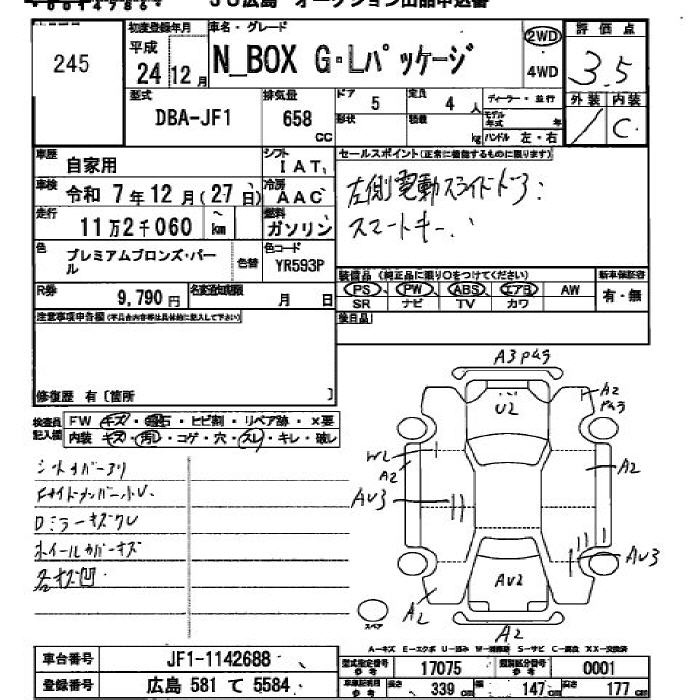 JU広島 オークション出品申込書
245
初度登録年月 車名・グレード
平成 24年 12月
N_BOX G・Lパッケージ
2WD 4WD
評価点 3.5
型式 DBA-JF1
排気量 658 CC
ドア 5 定員 4 人
形状 積載 kg
ディーラー・並行
モデル年式 年
ハンドル 左・右
外装 内装
/ C
車歴 自家用
シフト IAT
セールスポイント(正常に機能するものに限ります)
車検 令和 7年12月(27日)
冷房 AAC
左側電動スライドドア
スマートキー
走行 11万2千060 km
燃料 ガソリン
色 プレミアムブロンズ・パール
色替
色コード YR593P
装備品(純正品に限り○をつけてください) 新車保証書
PS PW ABS エアB AW 有・無
SR ナビ TV カワ
R券 9,790 円
名変通知期限 月 日
注意事項申告欄(不具合内容等は具体的に記入して下さい)
後日品
修復歴 有〔箇所 〕
検査員記入欄
FW キズ・飛石・ヒビ割・リペア跡・×要
内装 キズ・汚レ・コゲ・穴・スレ・キレ・破レ
シートカバーアリ
Fサイドメンバー小U
Dミラーキズワレ
ホイールカバーキズ
各キズ凹
A3 Pハゲ
A2 Pハゲ
U2
WL
A2
A2
AU3
AU3
AU2
A2
A2
スペア
A-キズ E-エクボ U-凹み W-補修跡 S-サビ C-腐食 XX-交換済
車台番号 JF1-1142688
登録番号 広島 581 て 5584
型式指定番号 17075 類別区分番号 0001
車庫証明項目 長さ 339 cm 幅 147 cm 高さ 177 cm